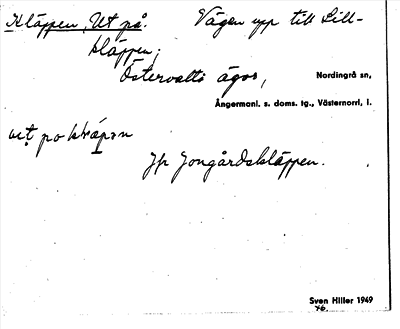 Kläppen, Ut på. Vägen upp till Lill-
kläppen;
Östervalls ägor, Nordingrå sn,
Ångermanl. s. doms. tg., Västernorrl. l.
ut po
Jfr Jongårdskläppen.
Sven Hiller 1949